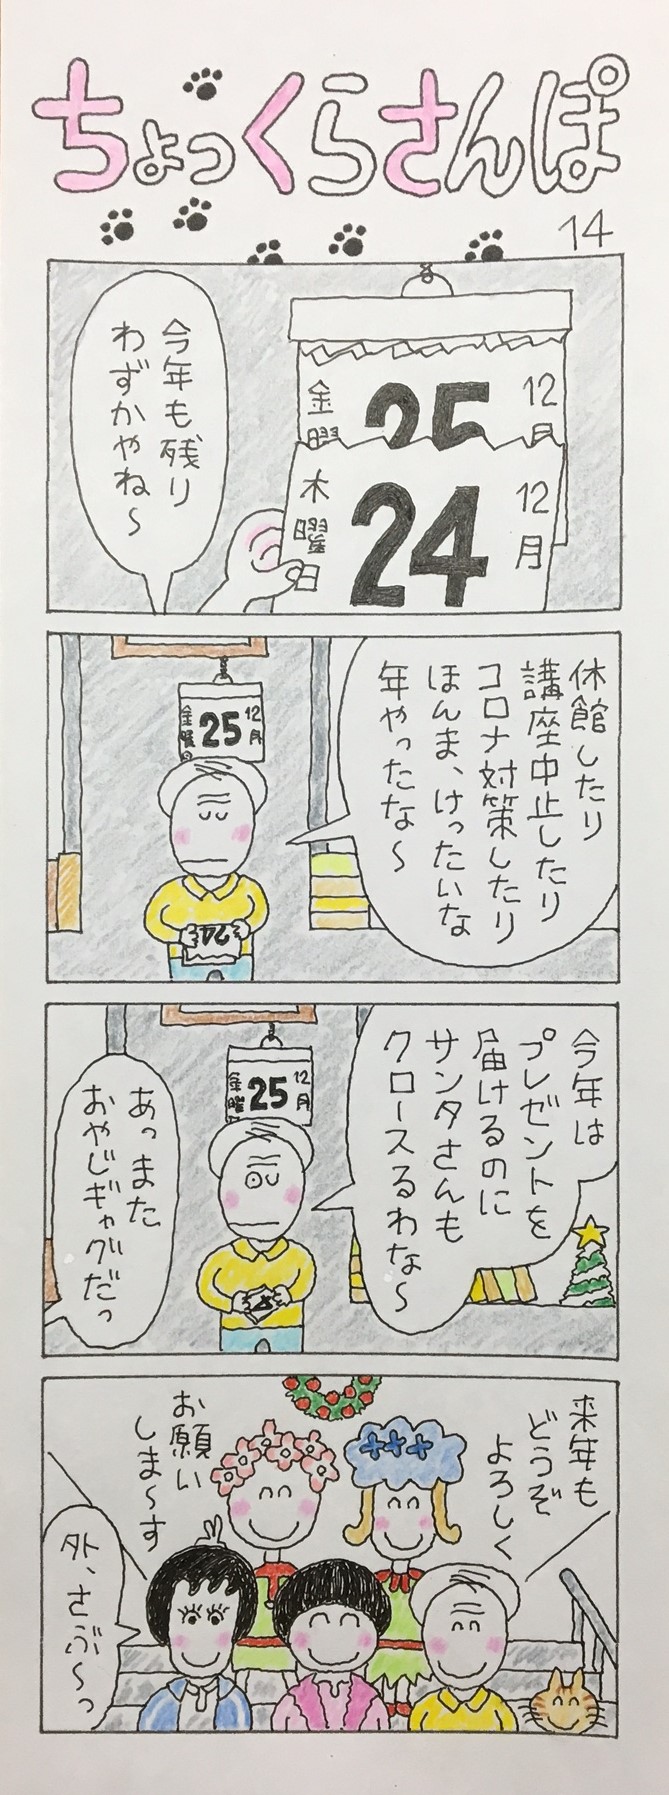 ちょっくらさんぽ
14
12月
25
金曜
12月
24
木曜日
今年も残り
わずかやね〜
休館したり
講座中止したり
コロナ対策したり
ほんま、けったいな
年やったな〜
12月
25
金曜日
24
今年は
プレゼントを
届けるのに
サンタさんも
クロースるわな〜
12月
25
金曜日
あっまた
おやじギャグだっ
来年も
どうぞ
よろしく
お願い
しま〜す
外、さぶ〜っ